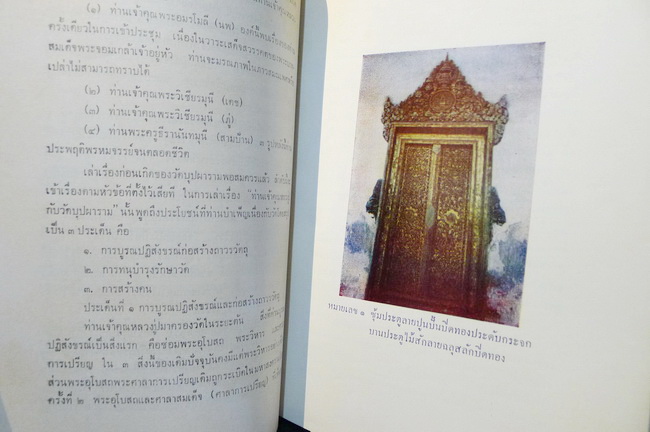 (๑) ท่านเจ้าคุณพระอมรโมลี (นพ) องค์
ครั้งเดียวในการเข้าประชุม เนื่องในวาระเสด็จสวรรคต
สมเด็จพระจอมเกล้าเจ้าอยู่หัว ท่านจะมรณภาพใน
เปล่าไม่สามารถทราบได้
(๒) ท่านเจ้าคุณพระวิเชียรมุนี (เทช)
(๓) ท่านเจ้าคุณพระวิเชียรมุนี (ภู่)
(๔) ท่านพระครูธีรานันทมุนี (สามบ้าน) ๓ รูป
ประพฤติพรหมจรรย์จนตลอดชีวิต
เล่าเรื่องก่อนเกิดของวัดบุปผารามพอสมควรแล้ว
เข้าเรื่องตามหัวข้อที่ตั้งไว้เสียที ในการเล่าเรื่อง "ท่านเจ้าคุณ
กับวัดบุปผาราม" นั้นพูดถึงประโยชน์ที่ท่านบำเพ็ญเนื่องกับวัด
เป็น ๓ ประเด็น คือ
๑. การบูรณปฏิสังขรณ์ก่อสร้างถาวรวัตถุ
๒. การทนุบำรุงรักษาวัด
๓. การสร้างคน
ประเด็นที่ ๑ การบูรณปฏิสังขรณ์และก่อสร้างถาวรวัตถุ
ท่านเจ้าคุณหลวงปู่มาครองวัดในระยะต้น
ปฏิสังขรณ์เป็นสิ่งแรก คือซ่อมพระอุโบสถ พระวิหาร
การเปรียญ ใน ๓ สิ่งนี้ของเดิมปัจจุบันคงมีแต่พระวิหาร
ส่วนพระอุโบสถพระศาลาการเปรียญเดิมถูกระเบิดใน
ครั้งที่ ๒ พระอุโบสถและศาลาสมเด็จ (ศาลาการเปรียญ)
หมายเลข ๑ ซุ้มประตูลายปูนปั้นปิดทองประดับกระจก
บานประตูไม้สักลายฉลุสลักปิดทอง